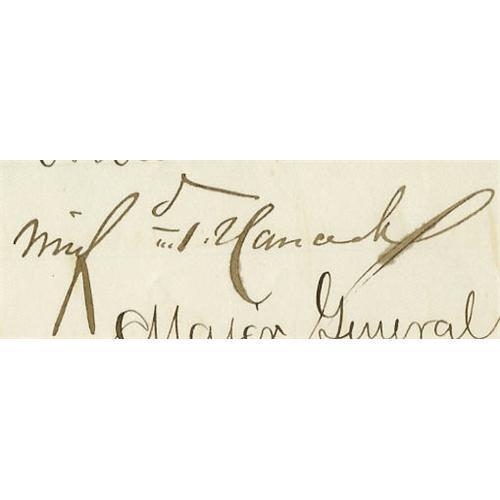 Winfd S. Hancock
Major General